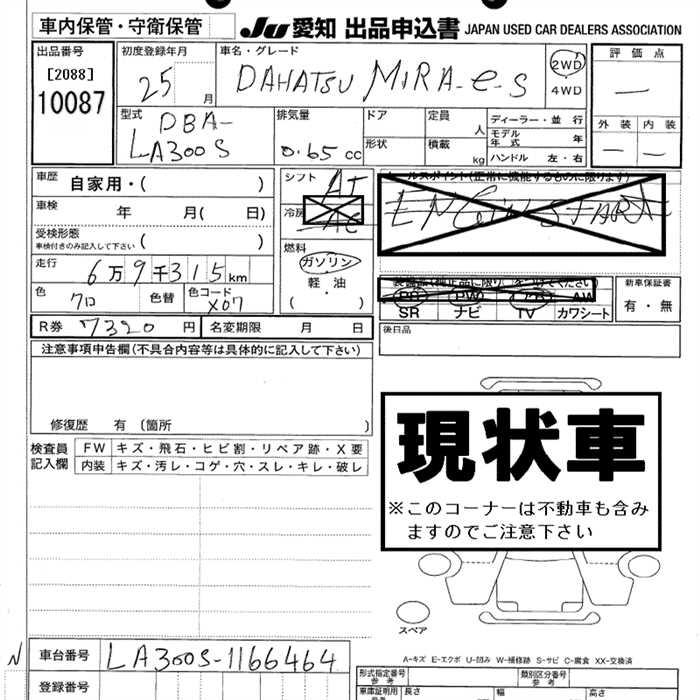 車内保管・守衛保管
JU 愛知 出品申込書 JAPAN USED CAR DEALERS ASSOCIATION
出品番号
[2088]
10087
初度登録年月
25 月
車名・グレード
DAHATSU MIRA-e-S
2WD
4WD
評価点
—
外装 内装
— —
型式
DBA-
LA300S
排気量
0.65 cc
ドア
形状
定員 人
積載 kg
ディーラー・並行
モデル年式 年
ハンドル 左・右
車歴 自家用・( )
車検 年 月( 日)
受検形態
車検付きのみ記入して下さい ( )
走行 6万9千315km
色 クロ 色替 色コード X07
シフト AT
冷房 AC
燃料
ガソリン
軽油
( ・ )
セールスポイント(正常に機能するものに限ります)
ENGIN START
装備品(純正品に限り○をつけてください)
PS PW AW
SR ナビ TV カワシート
新車保証書
有・無
R券 7320 円 名変期限 月 日
後日品
注意事項申告欄(不具合内容等は具体的に記入して下さい)
修復歴 有 〔箇所 〕
現状車
※このコーナーは不動車も含み
ますのでご注意下さい
検査員
記入欄
FW キズ・飛石・ヒビ割・リペア跡・X要
内装 キズ・汚レ・コゲ・穴・スレ・キレ・破レ
スペア
N 車台番号 LA300S-1166464
A-キズ E-エクボ U-凹み W-補修跡 S-サビ C-腐食 XX-交換済
登録番号
形式指定番号
参考
類別区分番号
参考
車庫証明用
参考
長さ 幅 高さ